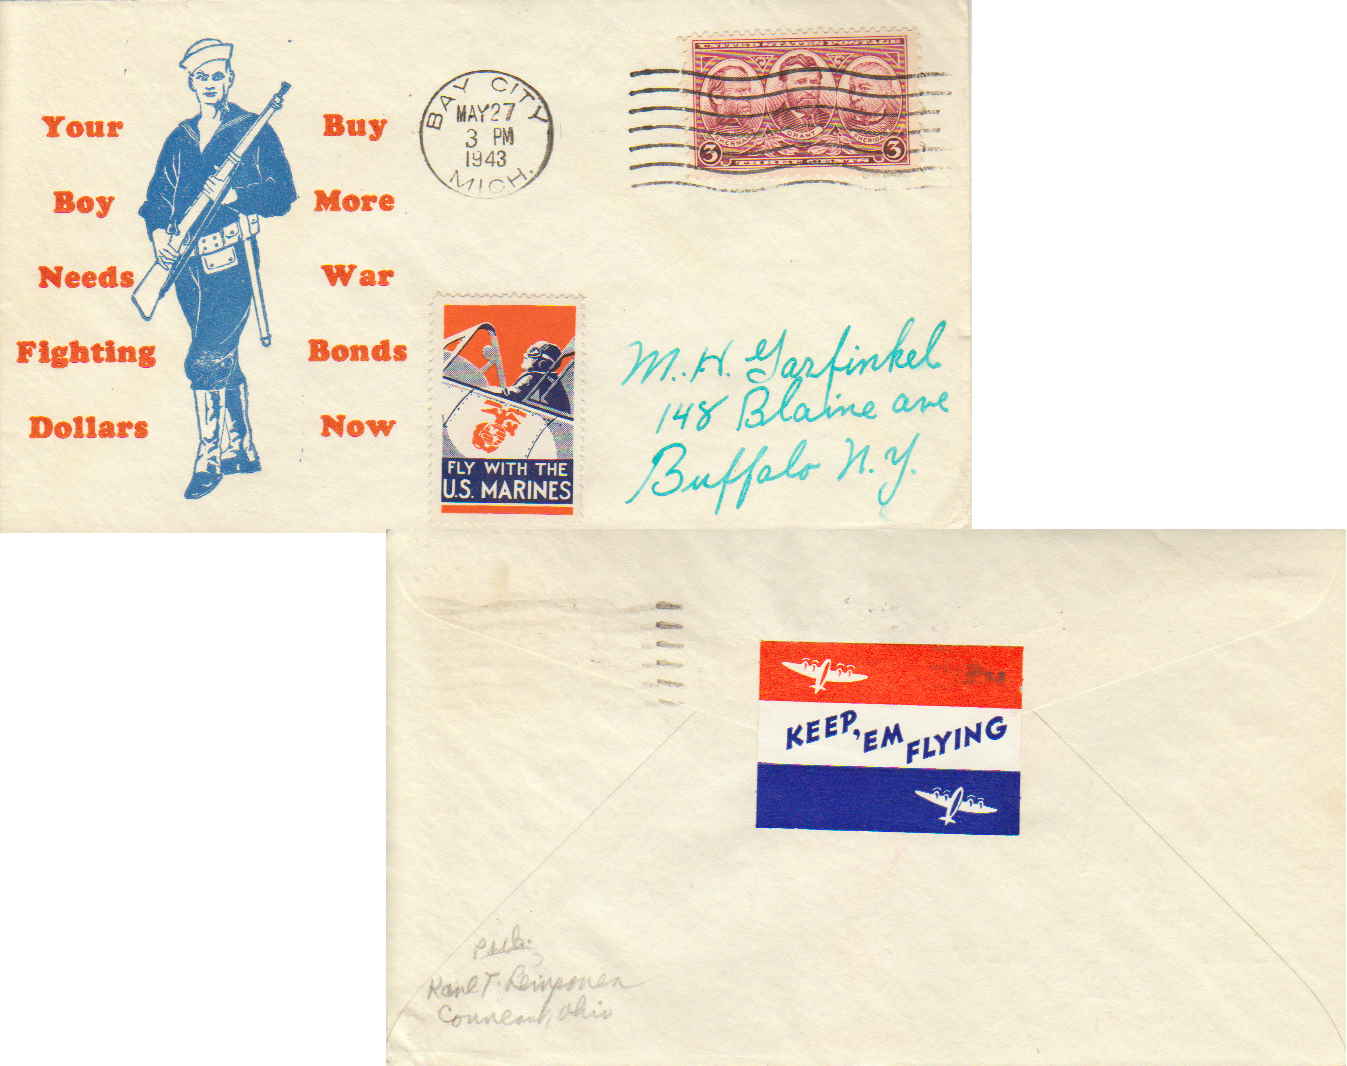 Your Buy
Boy More
Needs War
Fighting Bonds
Dollars Now
BAY CITY
MAY 27
3 PM
1943
MICH.
UNITED STATES POSTAGE
SHERMAN GRANT SHERIDAN
3 THREE CENTS 3
FLY WITH THE
U.S. MARINES
M. H. Garfinkel
148 Blaine ave
Buffalo N.Y.
KEEP 'EM FLYING
Karl T.
Conneaut, Ohio